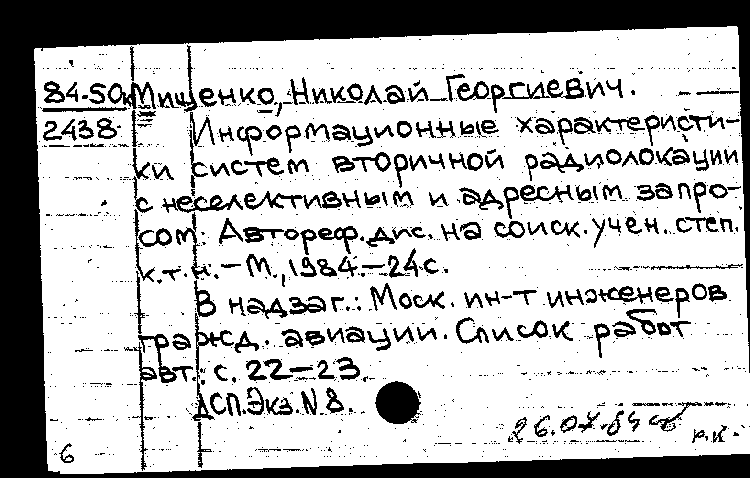 84-50к Мищенко, Николай Георгиевич.
2438 Информационные характеристи-
ки систем вторичной радиолокации
с неселективным и адресным запро-
сом: Автореф. дис. на соиск. учен. степ.
к.т.н. – М., 1984. – 24 с.
В надзаг.: Моск. ин-т инженеров
гражд. авиации. Список работ
авт.: с. 22–23.
ДСП. Экз. N 8.
26.07.84
р.к.
6